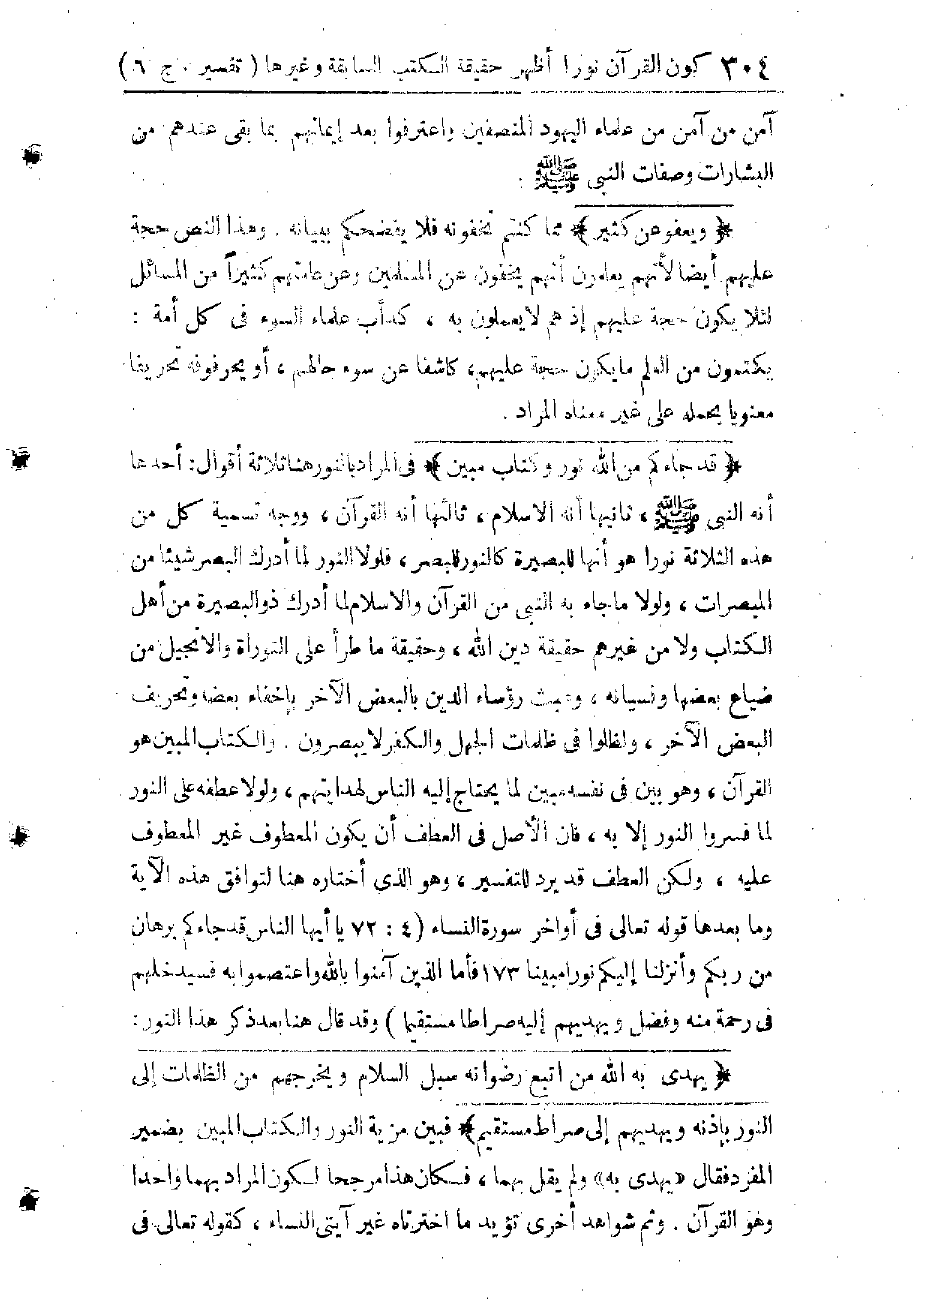 ٣٠٤ كون القرآن نورا أظهر حقيقة الكتب السابقة وغيرها ( تفسير . ج ٦ )
آمن من آمن من علماء اليهود المنصفين واعترفوا بعد إيمانهم بما بقى عندهم من
البشارات وصفات النبى ﷺ .
﴿ ويعفو عن كثير ﴾ مما كنتم تخفونه فلا يفضحكم ببيانه . وهذا النص حجة
عليهم أيضا لأنهم يعلمون أنهم يخفون عن المسلمين وعن عامتهم كثيراً من المسائل
لئلا يكون حجة عليهم إذ هم لا يعملون به ، كدأب علماء السوء فى كل أمة :
يكتمون من العلم ما يكون حجة عليهم، كاشفا عن سوء حالهم ، أو يحرفونه تحريفا
معنويا يحمله على غير معناه المراد .
﴿ قد جاءكم من الله نور وكتاب مبين ﴾ فى المراد بالنور هنا ثلاثة أقوال : أحدها
أنه النبى ﷺ ، ثانيها أنه الاسلام ، ثالثها أنه القرآن ، ووجه تسمية كل من
هذه الثلاثة نورا هو أنها للبصيرة كالنور للبصر ، فلولا النور لما أدرك البصر شيئا من
المبصرات ، ولولا ما جاء به النبى من القرآن والاسلام لما أدرك ذو البصيرة من أهل
الكتاب ولا من غيرهم حقيقة دين الله ، وحقيقة ما طرأ على التوراة والانجيل من
ضياع بعضها ونسيانه ، وعبث رؤساء الدين بالبعض الآخر بإخفاء بعضه وتحريف
البعض الآخر ، ولظلوا فى ظلمات الجهل والكفر لا يبصرون . والكتاب المبين هو
القرآن ، وهو بين فى نفسه مبين لما يحتاج إليه الناس لهدايتهم ، ولولا عطفه على النور
لما فسروا النور إلا به ، فان الأصل فى العطف أن يكون المعطوف غير المعطوف
عليه ، ولكن العطف قد يرد للتفسير ، وهو الذى أختاره هنا لتوافق هذه الآية
وما بعدها قوله تعالى فى أواخر سورة النساء (٤ : ٧٢ يا أيها الناس قد جاءكم برهان
من ربكم وأنزلنا إليكم نورا مبينا ١٧٣ فأما الذين آمنوا بالله واعتصموا به فسيدخلهم
فى رحمة منه وفضل ويهديهم إليه صراطا مستقيما ) وقد قال هنا بعد ذكر هذا النور :
﴿ يهدى به الله من اتبع رضوانه سبل السلام ويخرجهم من الظلمات إلى
النور بإذنه ويهديهم إلى صراط مستقيم ﴾ فبين مزية النور والكتاب المبين بضمير
المفرد فقال «يهدى به» ولم يقل بهما ، فكان هذا مرجحا لكون المراد بهما واحدا
وهو القرآن . وثم شواهد أخرى تؤيد ما اخترناه غير آيتى النساء ، كقوله تعالى فى